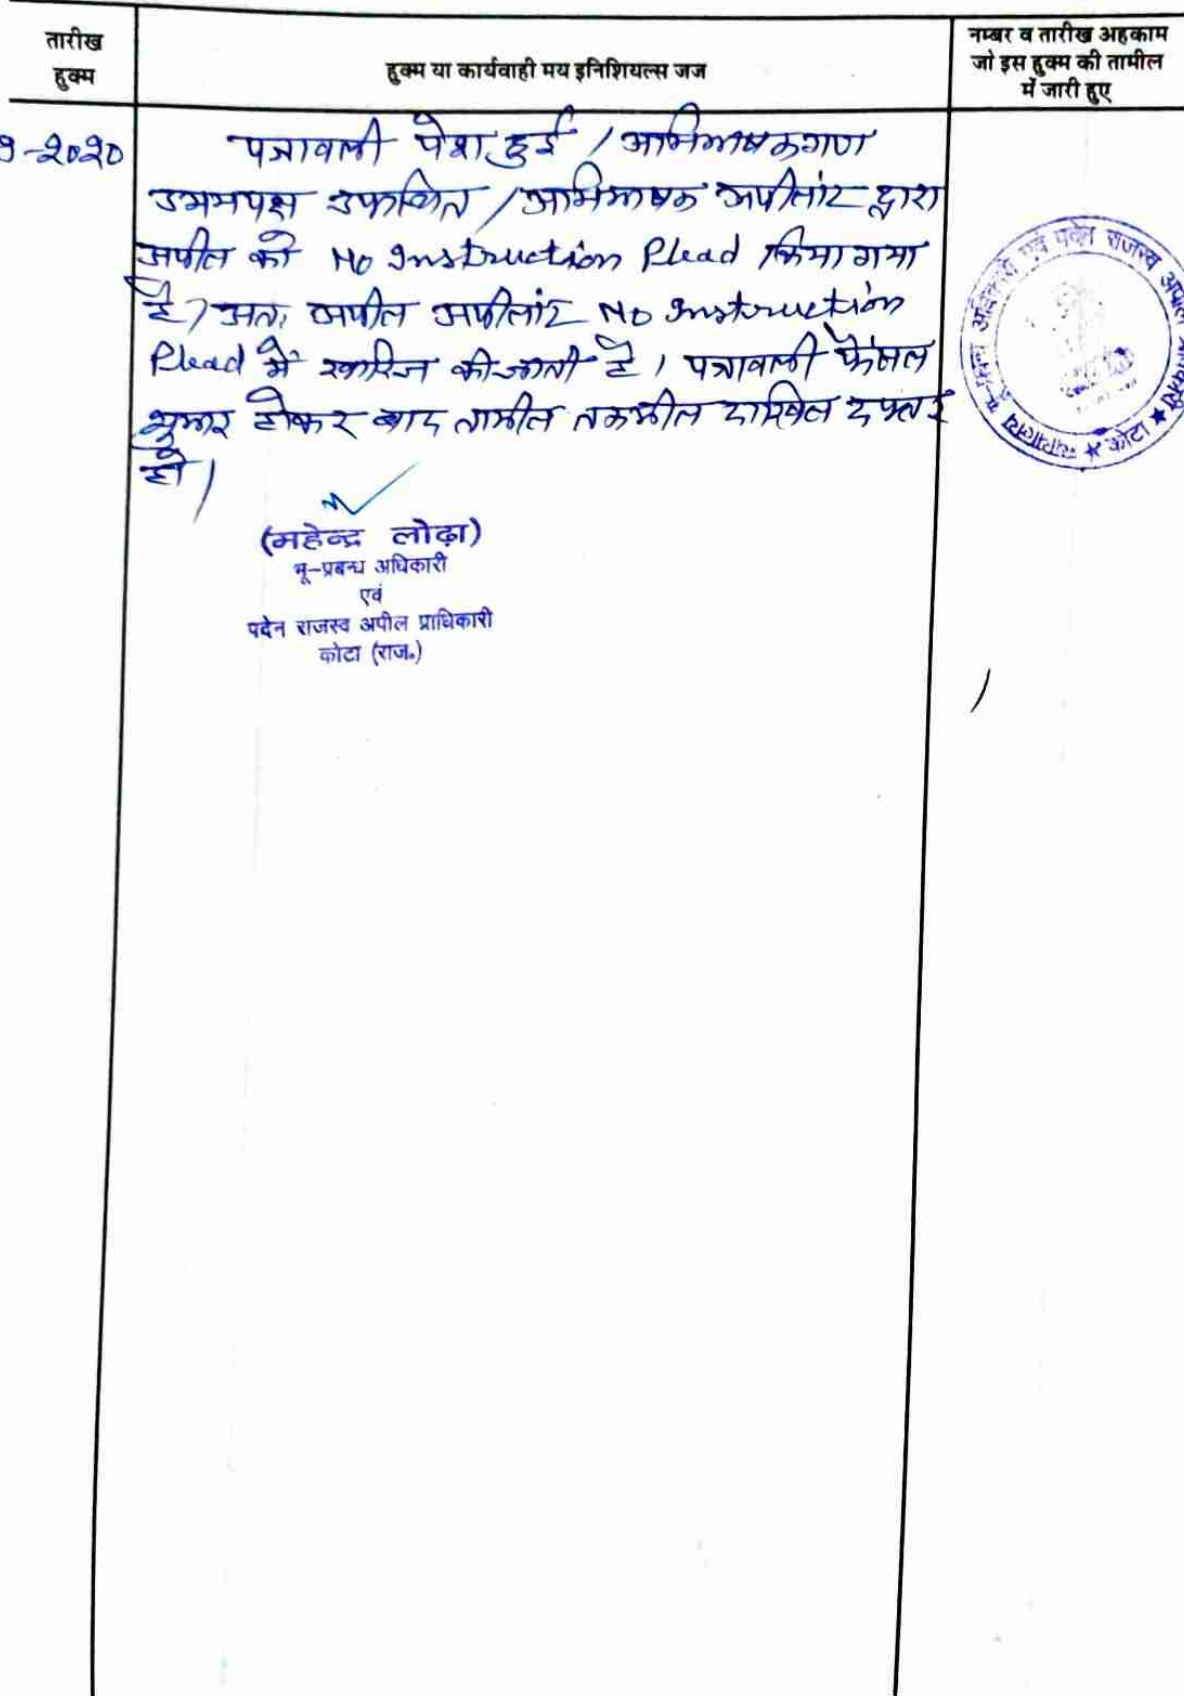 तारीख
हुक्म
हुक्म या कार्यवाही मय इनिशियल्स जज
नम्बर व तारीख अहकाम
जो इस हुक्म की तामील
में जारी हुए
9-2020
पत्रावली पेश हुई / अभिभाषकगण
उभयपक्ष उपस्थित / अभिभाषक अपीलांट द्वारा
अपील को No Instruction Plead किया गया
है / अतः अपील अपीलांट No Instruction
Plead में खारिज की जाती है। पत्रावली फैसल
शुमार होकर बाद तामील तकमील दाखिल दफ्तर
हो /
(महेन्द्र लोढ़ा)
भू-प्रबन्ध अधिकारी
एवं
पदेन राजस्व अपील प्राधिकारी
कोटा (राज॰)
न्यायालय भू-प्रबन्ध अधिकारी एवं पदेन राजस्व अपील ★ कोटा ★